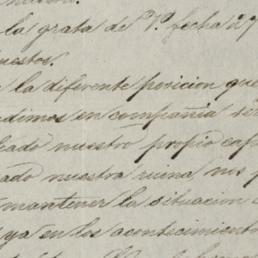 la grata de Vd. fecha 27
puestos.
la diferente posicion que
dimos en compañia
cado nuestro propio cap
ado nuestra ruina, nos p
mantener la situacion
ya en los acontecimiento